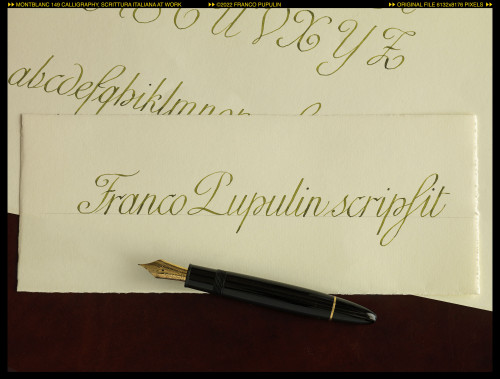 MONTBLANC 149 CALLIGRAPHY, SCRITTURA ITALIANA AT WORK ©2022 FRANCO PUPULIN ORIGINAL FILE 6132x8176 PIXELS
U V X Y Z
abcdefghiklmnop
Franco Pupulin scripsit